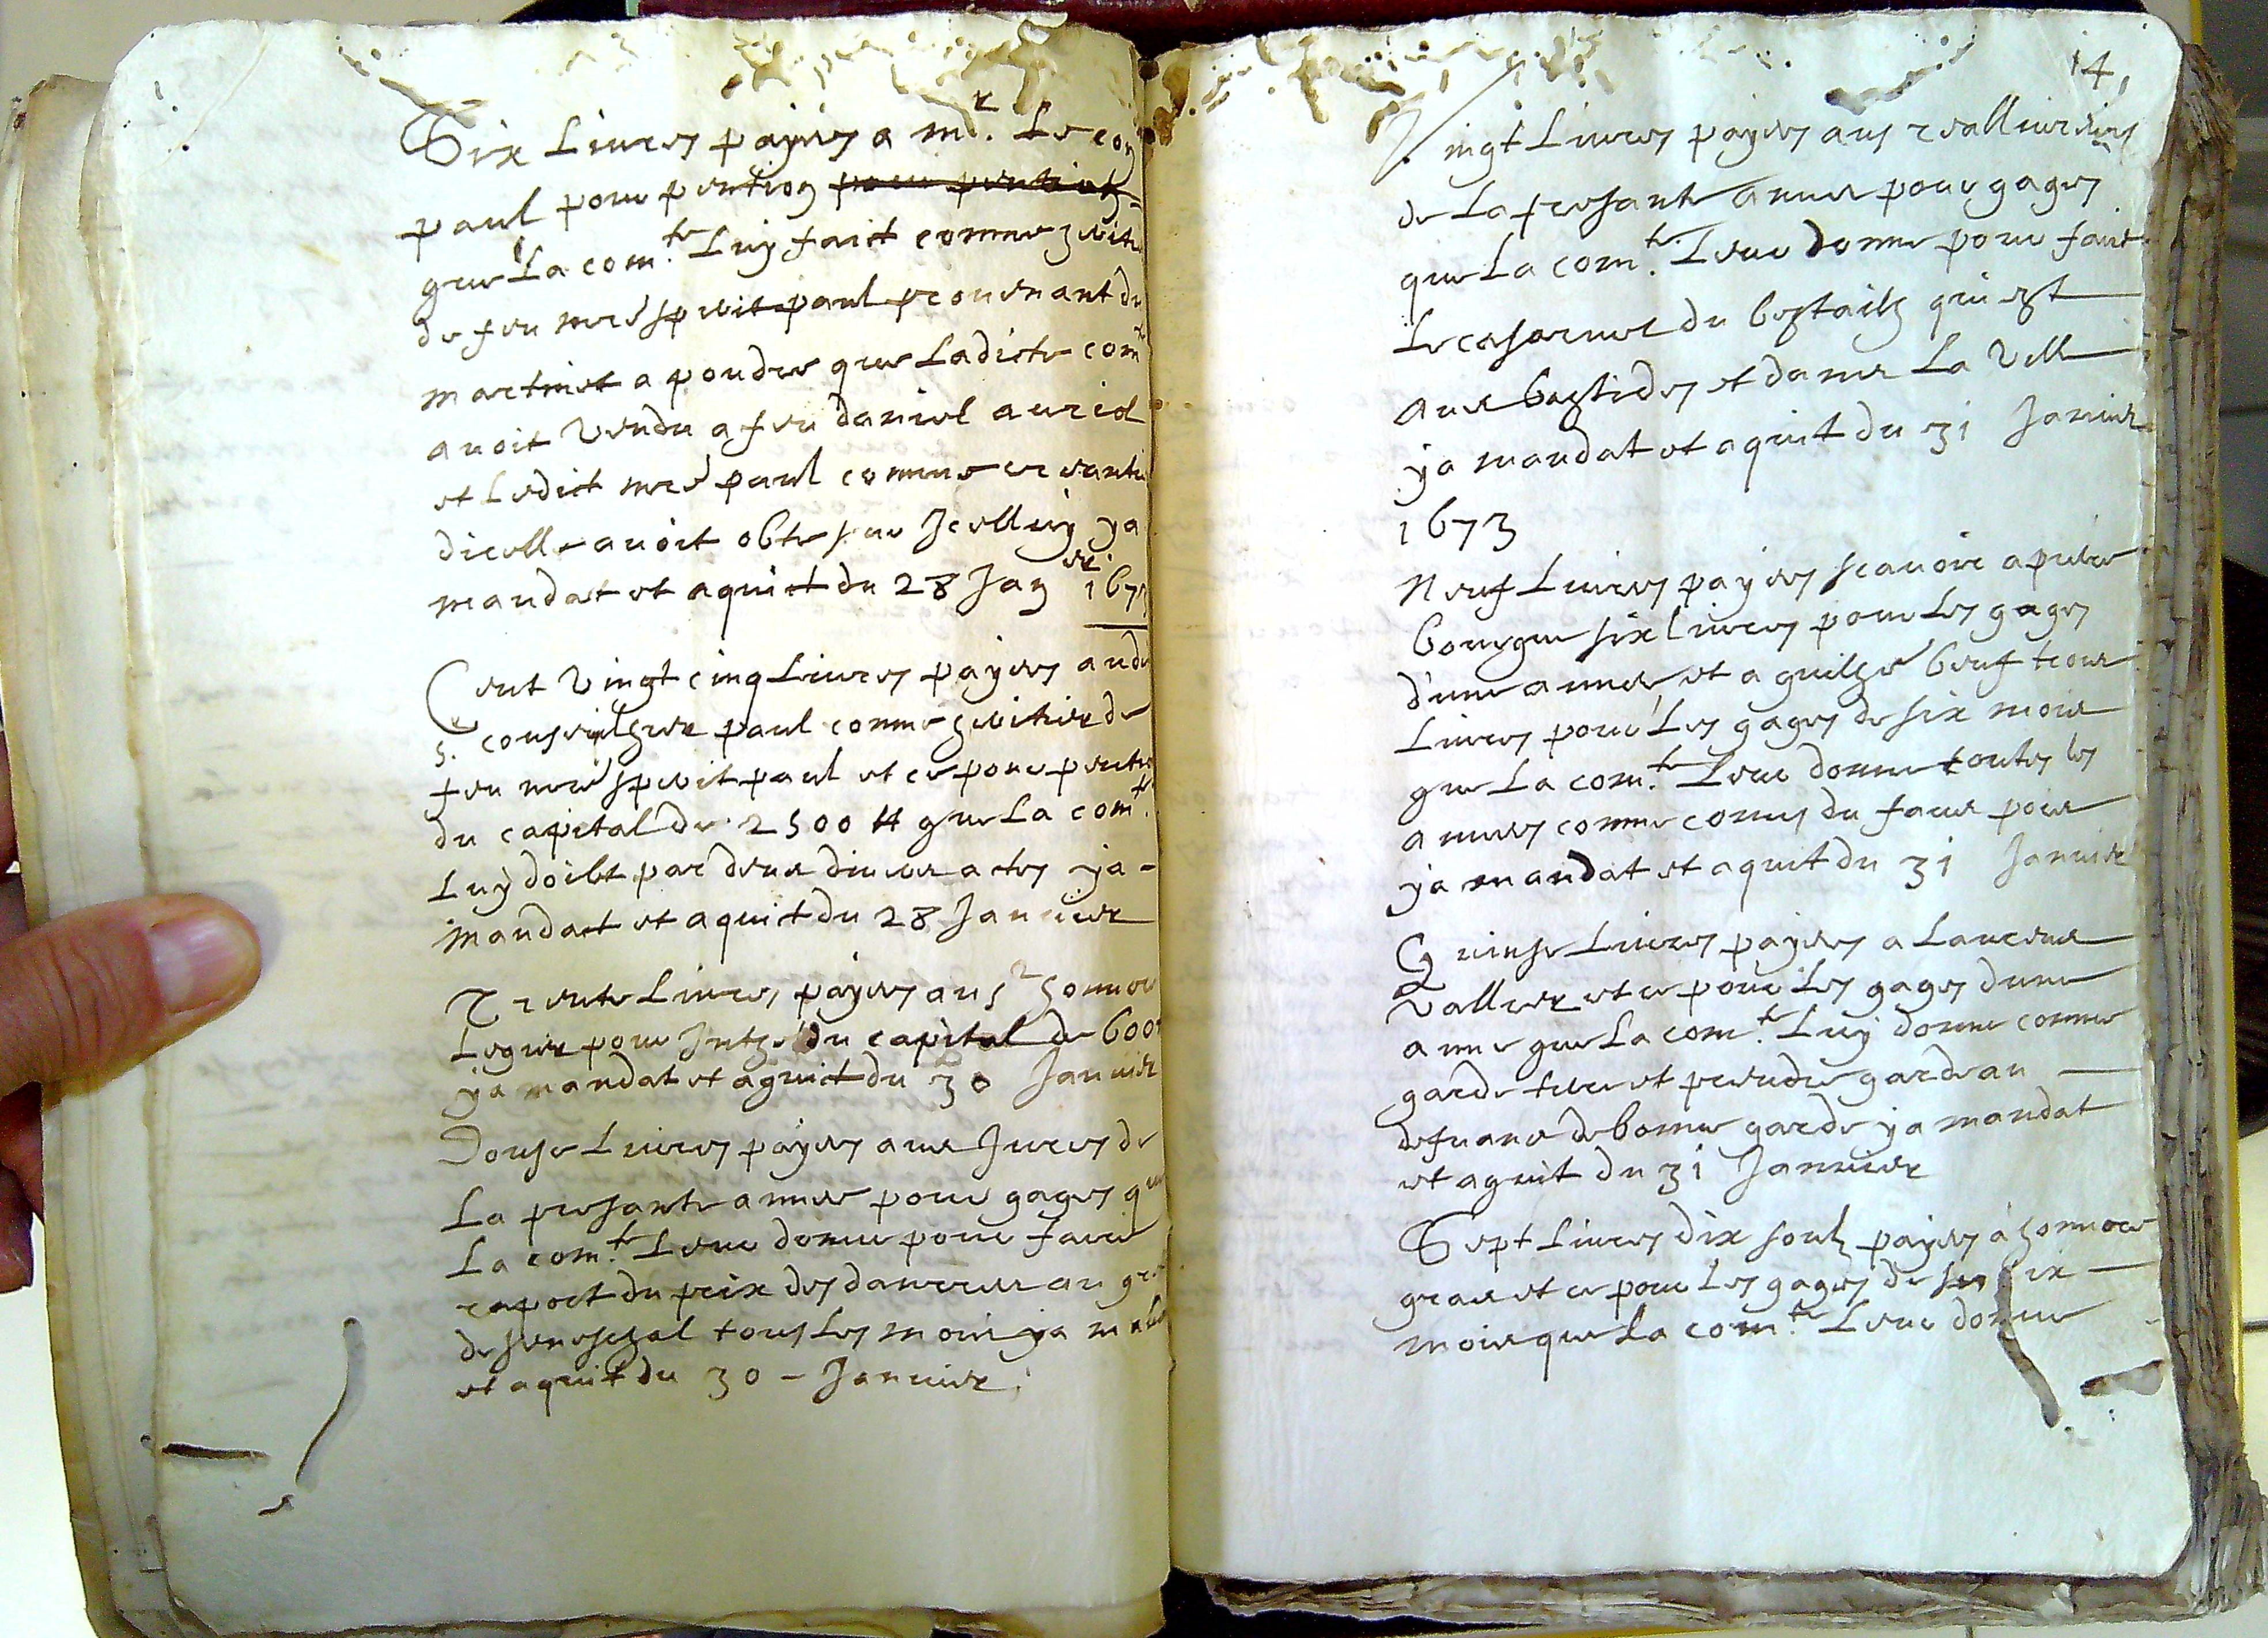 Six Liures payées a mr. Le con
paul pour pention pour pention
que La com.te Luy fait comme heritie
de feu mre esperit paul prouenant du
martinet a poudre que Ladicte com.te
auoit Vendu a feu daniel auriol
et Ledict mre paul comme ce
dicelle auoit sur Jcelluy ya
mandat et aquict du 28 Jan.er 167
Cent Vingt cinq Liures payées aud
s. conseilher paul comme heritier de
feu mre esperit paul et ce pour pention
du capital de 2500 # que La com.te
Luy doibt par deux diuers actes ya -
mandat et aquit du 28 Januier
Trente Liures payées au sr honnoré
Legier pour du capital de 600
ya mandat et aquict du 30 Januier
Douse Liures payées aux Jures de
La presante année pour gages que
La com.te Leur donne pour faire
raport du prix des danrees au gr
de senechal tous les mois ya
et aquit du 30 - Januier
14,
Vingt Liures payées aus
de La presante annee pour gages
que La com.te Leur donne pour faire
Le du bestailh qui est
aux bastides et dans La Ville
ya mandat et aquit du 31 Januier
1673
Neuf Liures payées scauoir a pierre
bourgue six liures pour Les gages
d'une annee et a guilhe beuf trois
Liures pour Les gages de six mois
que La com.te Leur donne toutes les
annees comme comis du faux pois
ya mandat et aquit du 31 Januier
Quinse Liures payées a Laurens
Vallier et ce pour Les gages dune
annee que La com.te Luy donne comme
garde terre et prendre garde au
de bonne garde ya mandat
et aquit du 31 Januier
Sept Liures dix soulz payées a honnoré
gras et ce pour Les gages de six
mois que La com.te Leur donne